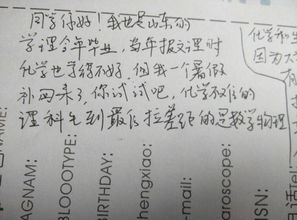 同学你好！我也是山东的
学理今年毕业，当年报文理时
化学也学得不好，但我一个暑假
补回来了，你试试吧，化学不难的
理科生到最后拉差距的是数学物理
化学和生
因为大
NAME:
AGNAM:
BLOOOTYPE:
BIRTHDAY:
hengxiao:
-mail:
aroscope:
ISN:
话Tell